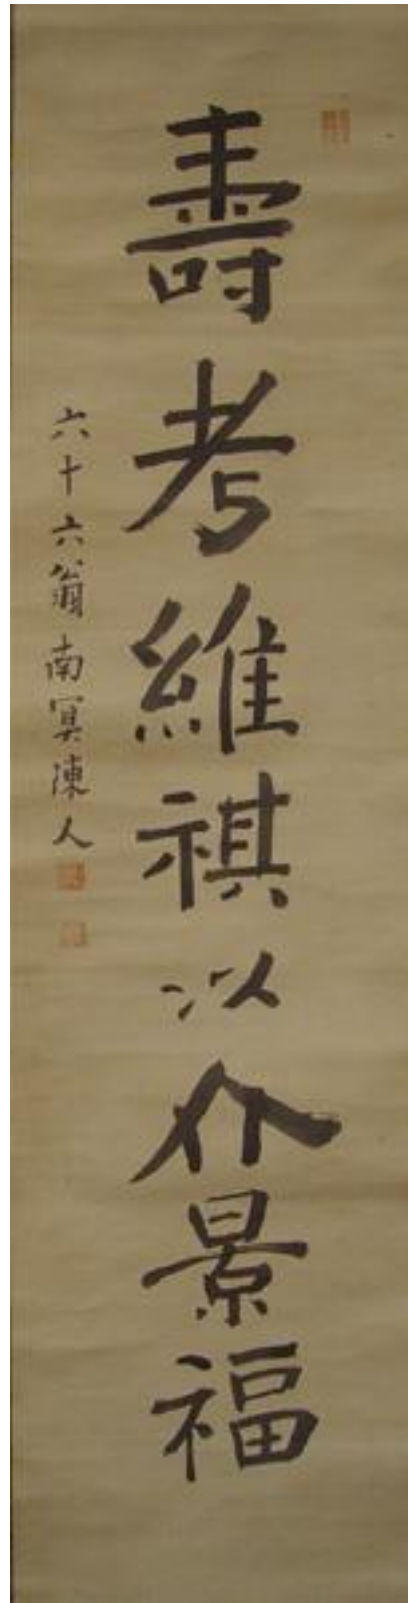 壽考維祺以介景福
六十六翁南冥陳人